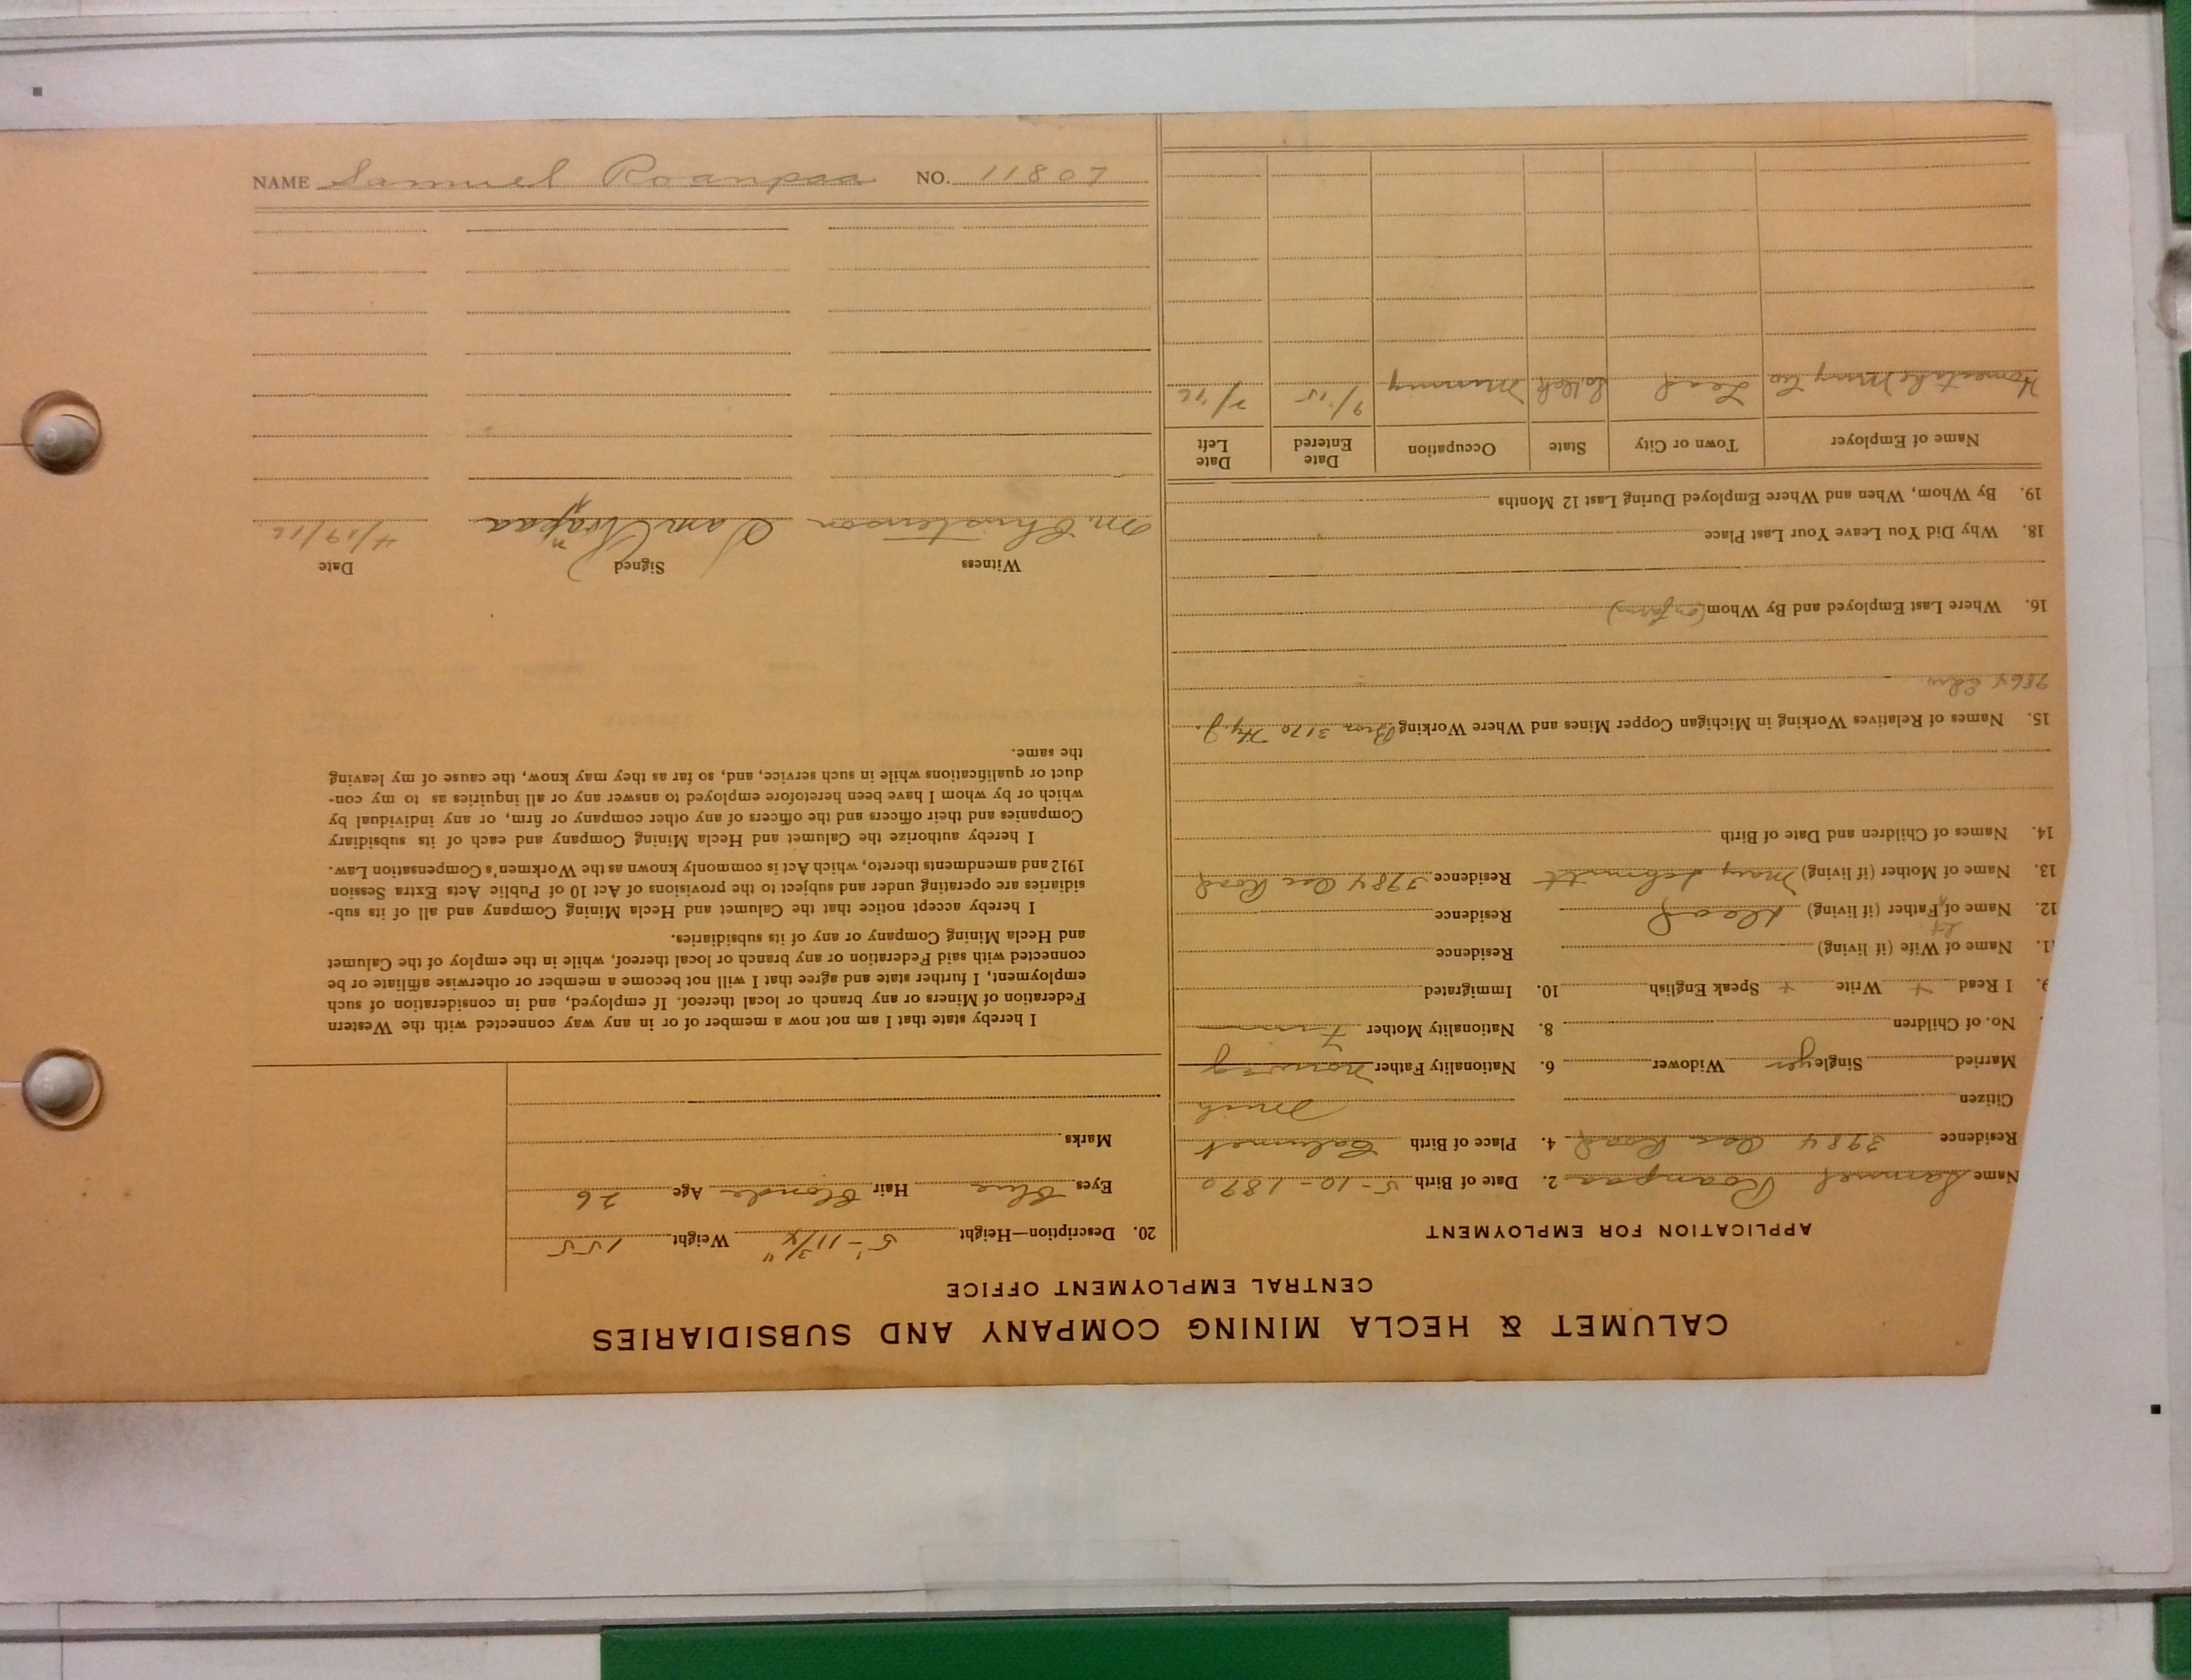 NAME Samuel Roanpaa NO. 11807
CALUMET & HECLA MINING COMPANY AND SUBSIDIARIES
CENTRAL EMPLOYMENT OFFICE
APPLICATION FOR EMPLOYMENT
Name Samuel Roanpaa 2. Date of Birth 5-10-1890
Residence 3984 Oar Road 4. Place of Birth Calumet
Citizen Mich
Married Single yes Widower 6. Nationality Father
No. of Children 8. Nationality Mother
9. I Read + Write + Speak English 10. Immigrated
11. Name of Wife (if living) Residence
12. Name of Father (if living) dead Residence
13. Name of Mother (if living) Mary Schmidt Residence 3984 Oar Road
14. Names of Children and Date of Birth
15. Names of Relatives Working in Michigan Copper Mines and Where Working Bros 3170
16. Where Last Employed and By Whom (on farm)
18. Why Did You Leave Your Last Place
19. By Whom, When and Where Employed During Last 12 Months
Name of Employer Town or City State Occupation Date Entered Date Left
Homestake Mining Co Lead So. Dak Mining 9/15
20. Description—Height 5'-11 3/4" Weight 155
Eyes Blue Hair Blonde Age 26
Marks
I hereby state that I am not now a member of or in any way connected with the Western
Federation of Miners or any branch or local thereof. If employed, and in consideration of such
employment, I further state and agree that I will not become a member or otherwise affiliate or be
connected with said Federation or any branch or local thereof, while in the employ of the Calumet
and Hecla Mining Company or any of its subsidiaries.
I hereby accept notice that the Calumet and Hecla Mining Company and all of its sub-
sidiaries are operating under and subject to the provisions of Act 10 of Public Acts Extra Session
1912 and amendments thereto, which Act is commonly known as the Workmen's Compensation Law.
I hereby authorize the Calumet and Hecla Mining Company and each of its subsidiary
Companies and their officers and the officers of any other company or firm, or any individual by
which or by whom I have been heretofore employed to answer any or all inquiries as to my con-
duct or qualifications while in such service, and, so far as they may know, the cause of my leaving
the same.
Witness Signed Date
M. Christenson Sam 4/19/16